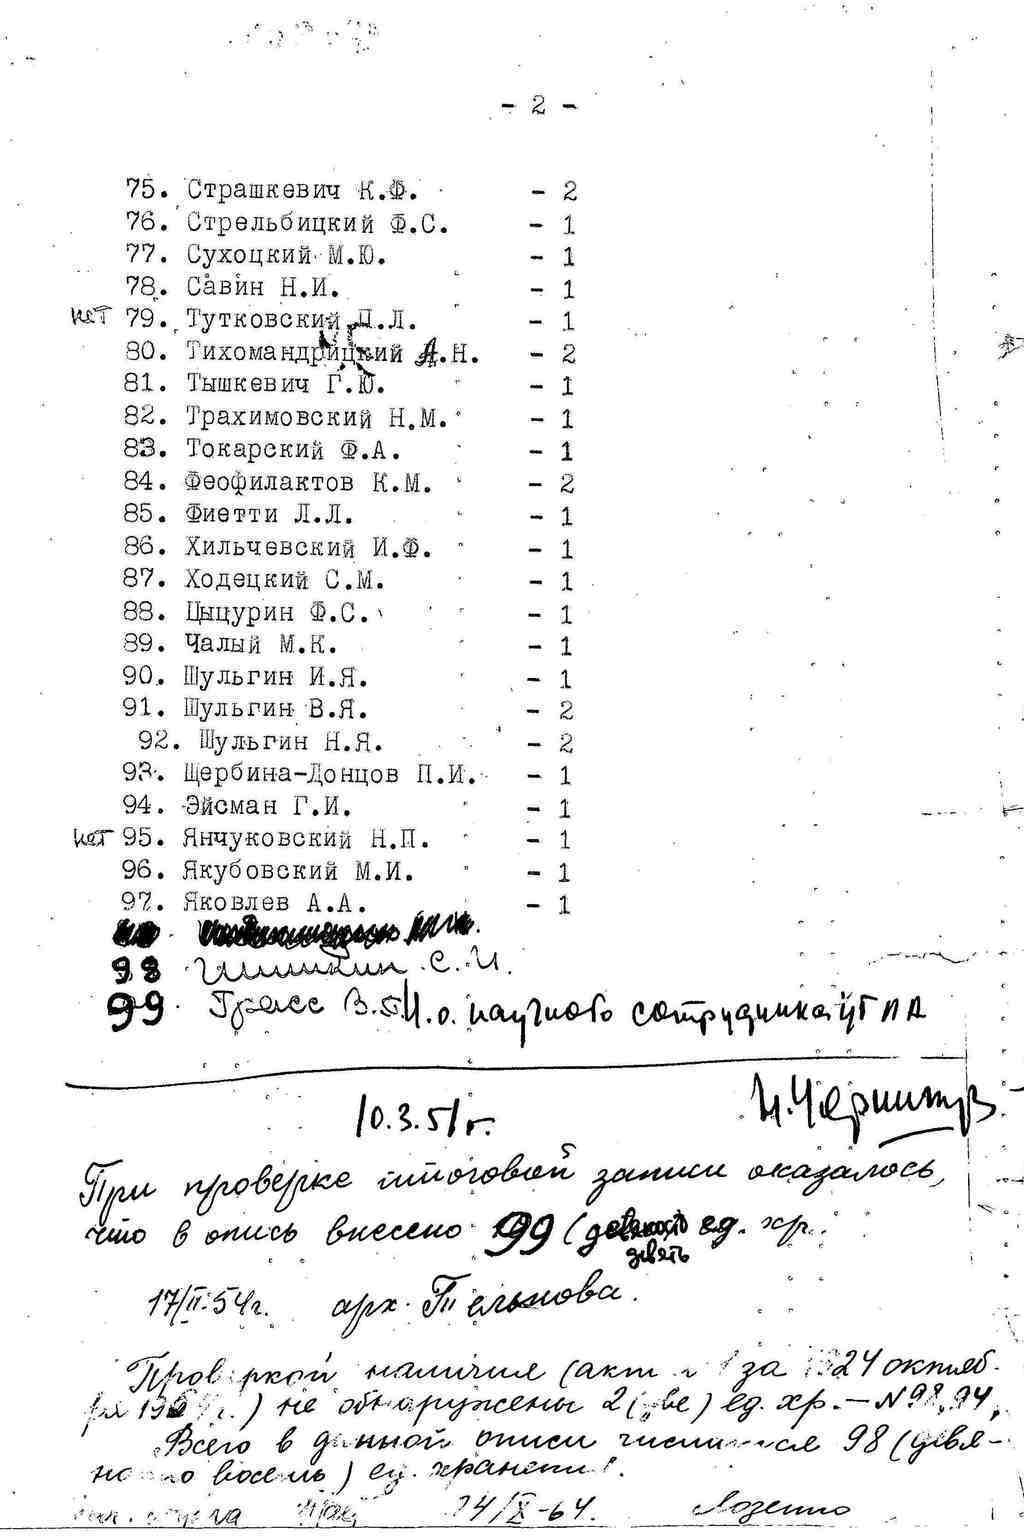 - 2 -
75. Страшкевич К.Ф. - 2
76. Стрельбицкий Ф.С. - 1
77. Сухоцкий М.Ю. - 1
78. Савин Н.И. - 1
нет 79. Тутковский П.Л. - 1
80. Тихомандрицкий А.Н. - 2
81. Тышкевич Г.Ю. - 1
82. Трахимовский Н.М. - 1
83. Токарский Ф.А. - 1
84. Феофилактов К.М. - 2
85. Фиетти Л.Л. - 1
86. Хильчевский И.Ф. - 1
87. Ходецкий С.М. - 1
88. Цыцурин Ф.С. - 1
89. Чалый М.К. - 1
90. Шульгин И.Я. - 1
91. Шульгин В.Я. - 2
92. Шульгин Н.Я. - 2
93. Щербина-Донцов П.И. - 1
94. Эйсман Г.И. - 1
нет 95. Янчуковский Н.П. - 1
96. Якубовский М.И. - 1
97. Яковлев А.А. - 1
98 Шишкин С.И.
99. Грасс В. И.о. научного сотрудника
10.3.51г.
При проверке итоговой записи оказалось,
что в опись внесено 99 (девяносто девять ед. хр.
17/II.54г. арх. Тельнова.
Проверкой наличия (акт за 24 октяб-
ря ) не обнаружены 2 (две) ед. хр. - N
Всего в данной описи числится 98 (девя-
носто восемь) ед. хранения.
24/X-64.